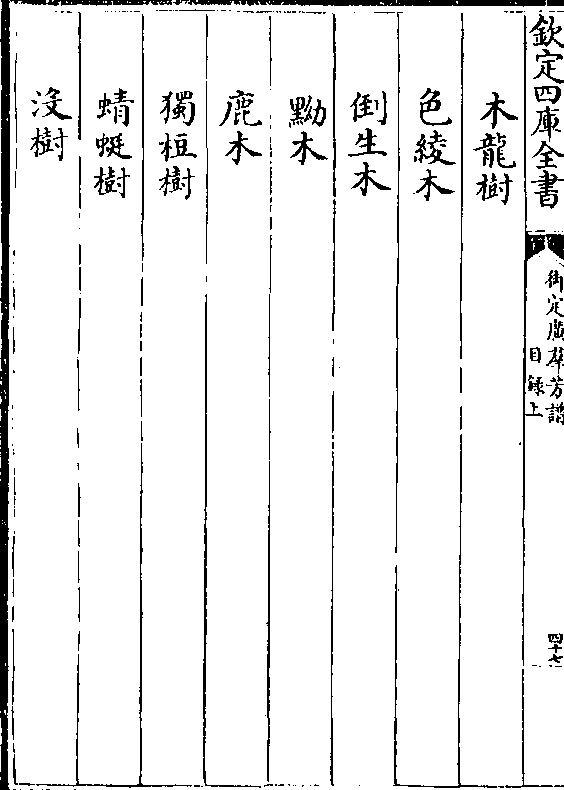 欽定四庫全書
御定廣羣芳譜
目錄上
四十七
木龍樹
色綾木
倒生木
黝木
鹿木
獨桓樹
蜻蜓樹
沒樹